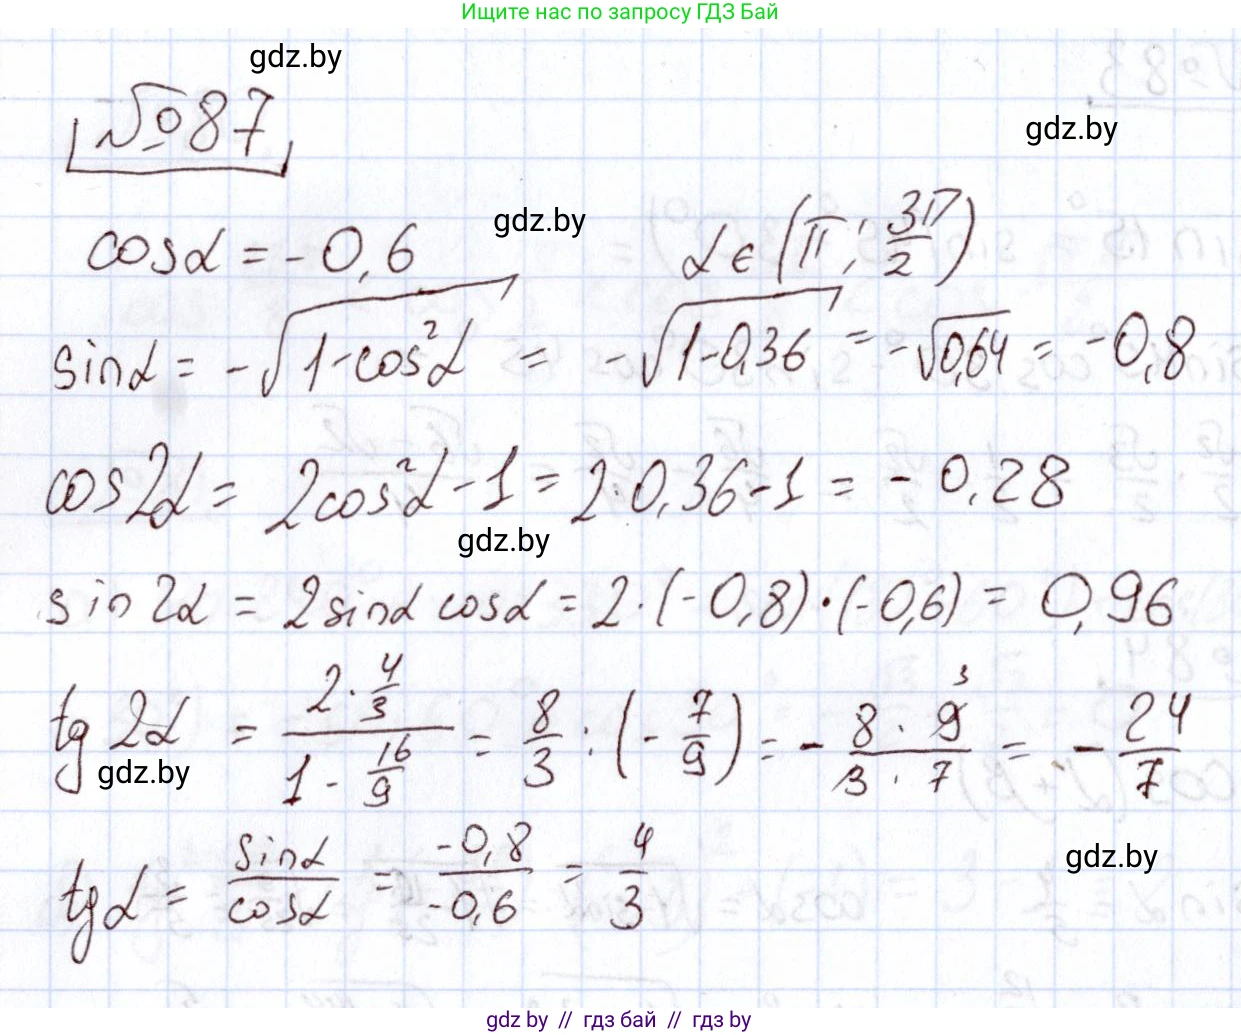 Ищите нас по запросу ГДЗ Бай
gdz.by
№87
gdz.by
gdz.by
cosα = -0,6   α ∈ (π; 3π/2)
sinα = -√(1-cos²α) = -√(1-0,36) = -√0,64 = -0,8
cos2α = 2cos²α - 1 = 2·0,36-1 = -0,28
gdz.by
sin2α = 2sinα cosα = 2·(-0,8)·(-0,6) = 0,96
tg2α = (2·4/3)/(1 - 16/9) = 8/3 : (-7/9) = - (8·9 3)/(3·7) = - 24/7
gdz.by
gdz.by
tgα = sinα/cosα = -0,8/-0,6 = 4/3
gdz by // гдз бай // гдз by